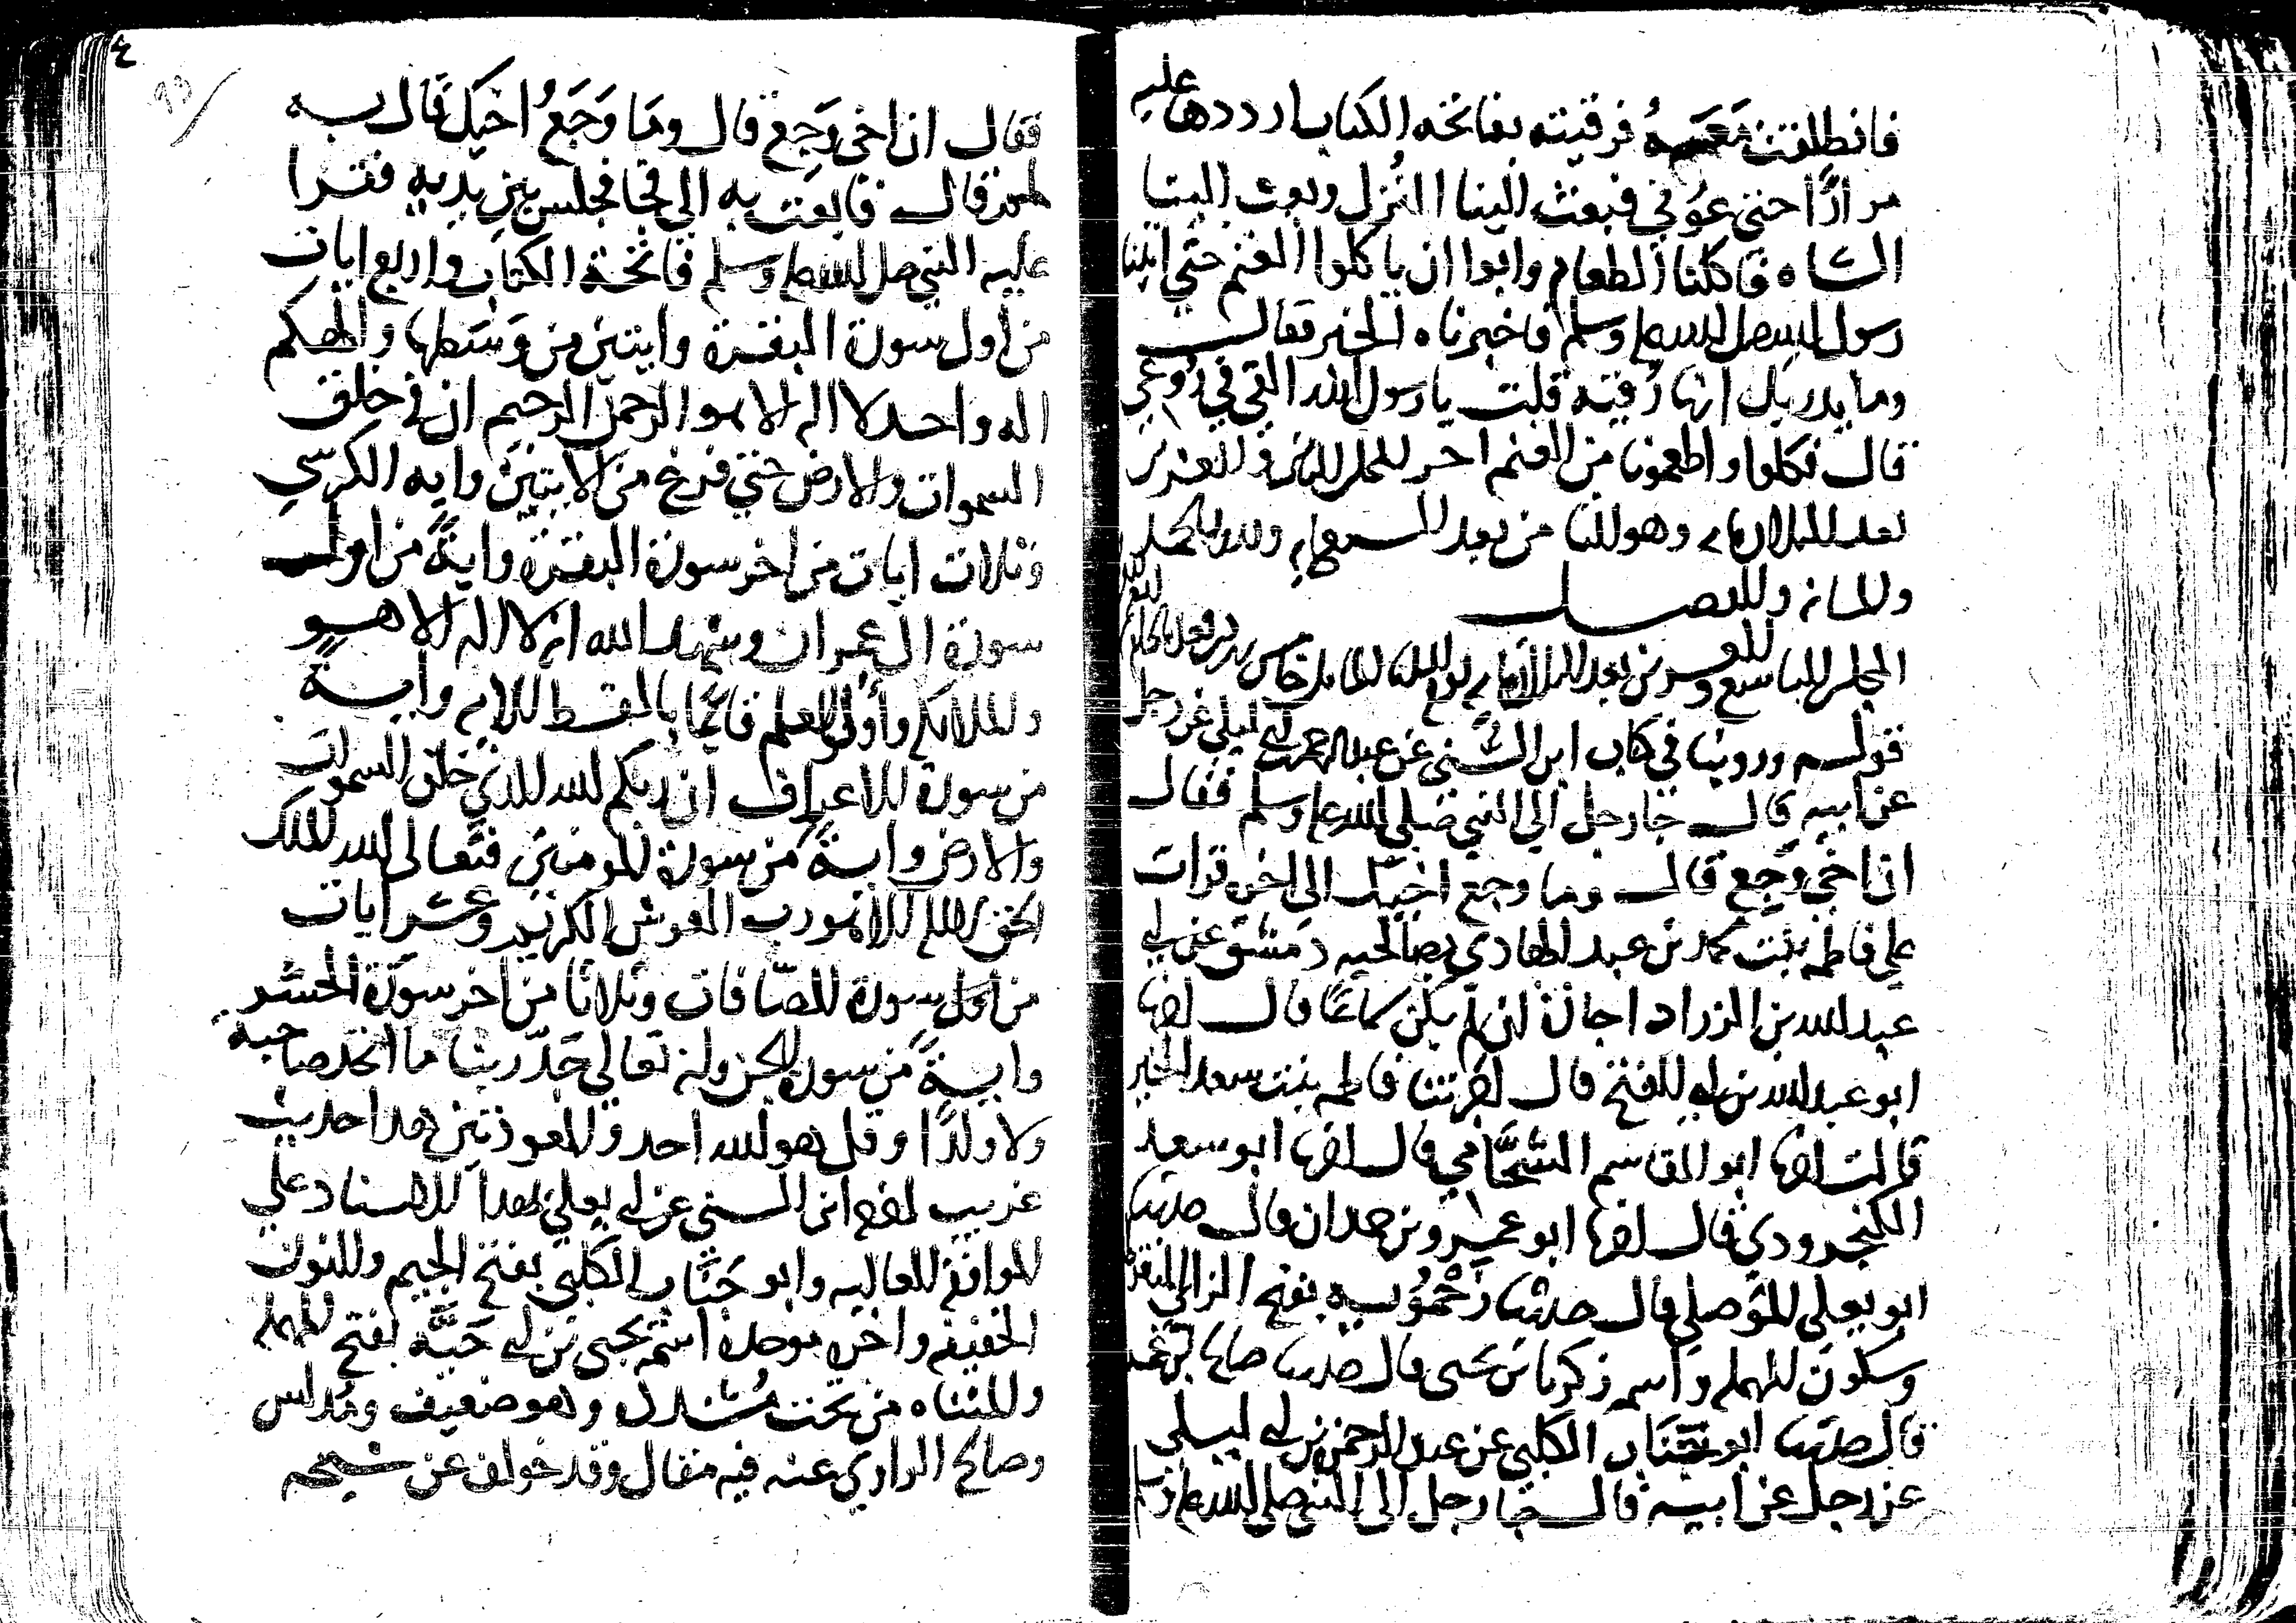 فانطلقت معه فرقيته بفاتحة الكتاب ارددها عليه
مرارا حتى عوفي فبعث الينا النُزل وبعث الينا
الشاه فاكلنا الطعام وابوا ان ياكلوا الغنم حتي اتينا
رسول الله صلى الله عليه وسلم فاخبرناه الخبر فقال
وما يدريك انها رُقيه قلت يا رسول الله القي في رُوعي
قال فكلوا واطعمونا من الغنم اخر المجلس الثامن والعشرين
بعد الثلاثمايه وهو الثامن من بعد السبعمايه
قوله وروينا في كتاب ابن السُّني عن عبد الرحمن بن ابي ليلي عن رجل
عن ابيه قال جا رجل الي النبي صلي الله عليه وسلم فقال
ان اخي وَجِع قال وما وجع اخيك الى اخره قرات
علي فاطمه بنت محمد بن عبد الهادي بصالحيه دمشق عن ابي
عبد الله بن الزراد اجازة ان لم يكن سماعًا قال اخبرنا
ابو عبد الله بن ابي الفتح قال اخبرتنا فاطمه بنت سعد الخير
قالت اخبرنا ابو القاسم الشَّحَّامي قال اخبرنا ابو سعد
الكنجرودي قال اخبرنا ابو عمرو بن حمدان قال حدثنا
ابو يعلي المَوْصلي قال حدثنا زَحْمُوْيه بفتح الزاي المنقوطة
وسكون المهمله واسمه زكريا بن يحيى قال حدثنا صالح بن عمر
قال حدثنا ابو جَنَاب الكلبي عن عبد الرحمن بن ابي ليلي
عن رجل عن ابيه قال جا رجل الى النبي صلى الله عليه وسلم
٤
فقال ان اخي وَجِع قال وما وَجَعُ اخيك قال به
لمم قال فابعث به الي فجا فجلس بين يديه فقرا
عليه النبي صلى الله عليه وسلم فاتحة الكتاب واربع ايات
من اول سورة البقرة وايتين من وَسَطها والهكم
اله واحد لا اله الا هو الرحمن الرحيم ان في خلق
السموات والارض حتي فرغ من الايتين وايه الكرسي
وثلاث ايات من اخر سورة البقرة وايةً من اول
سورة ال عمران وشهد الله انه لا اله الا هو
والملائكه وأولوا العلم قائمًا بالقسط الايه وايةً
من سورة الاعراف ان ربكم الله الذي خلق السموات
والارض وايةً من سورة المومنين فتعالى الله الملك
الحق لا اله الا هو رب العرش الكريم وعشر ايات
من اول سورة الصّافات وثلاثا من اخر سورة الحشر
وايةً من سورة الجن وانه تعالي جَدّ ربنا ما اتخذ صاحبة
ولا ولدًا وقل هو الله احد والمعوذتين هذا حديث
غريب اخرجه ابن السني عن ابي يعلي بهذا الاسناد علي
الموافقة العاليه وابو جَنَاب الكلبي بفتح الجيم والنون
الخفيفه واخره موحدة اسمه يحيى بن ابي حَيَّه بفتح المهمله
والمثناه من تحت مُشدده وهو ضعيف ومُدلس
وصالح الراوي عنه فيه مقال وقد خولف عن شيخه